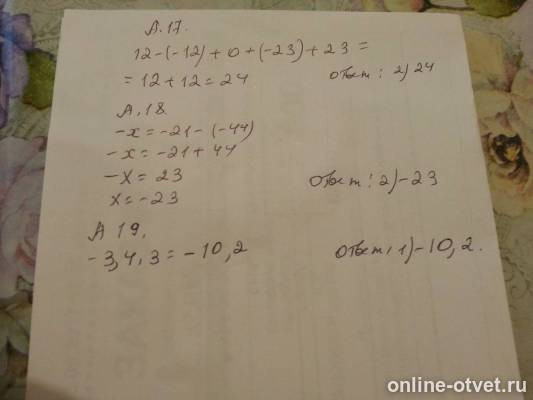 А.17.
12-(-12)+0+(-23)+23=
=12+12=24 ответ: 2)24
А.18.
-x=-21-(-44)
-x=-21+44
-x=23
x=-23 ответ: 2)-23
А 19.
-3,4.3=-10,2 ответ: 1)-10,2.
online-otvet.ru